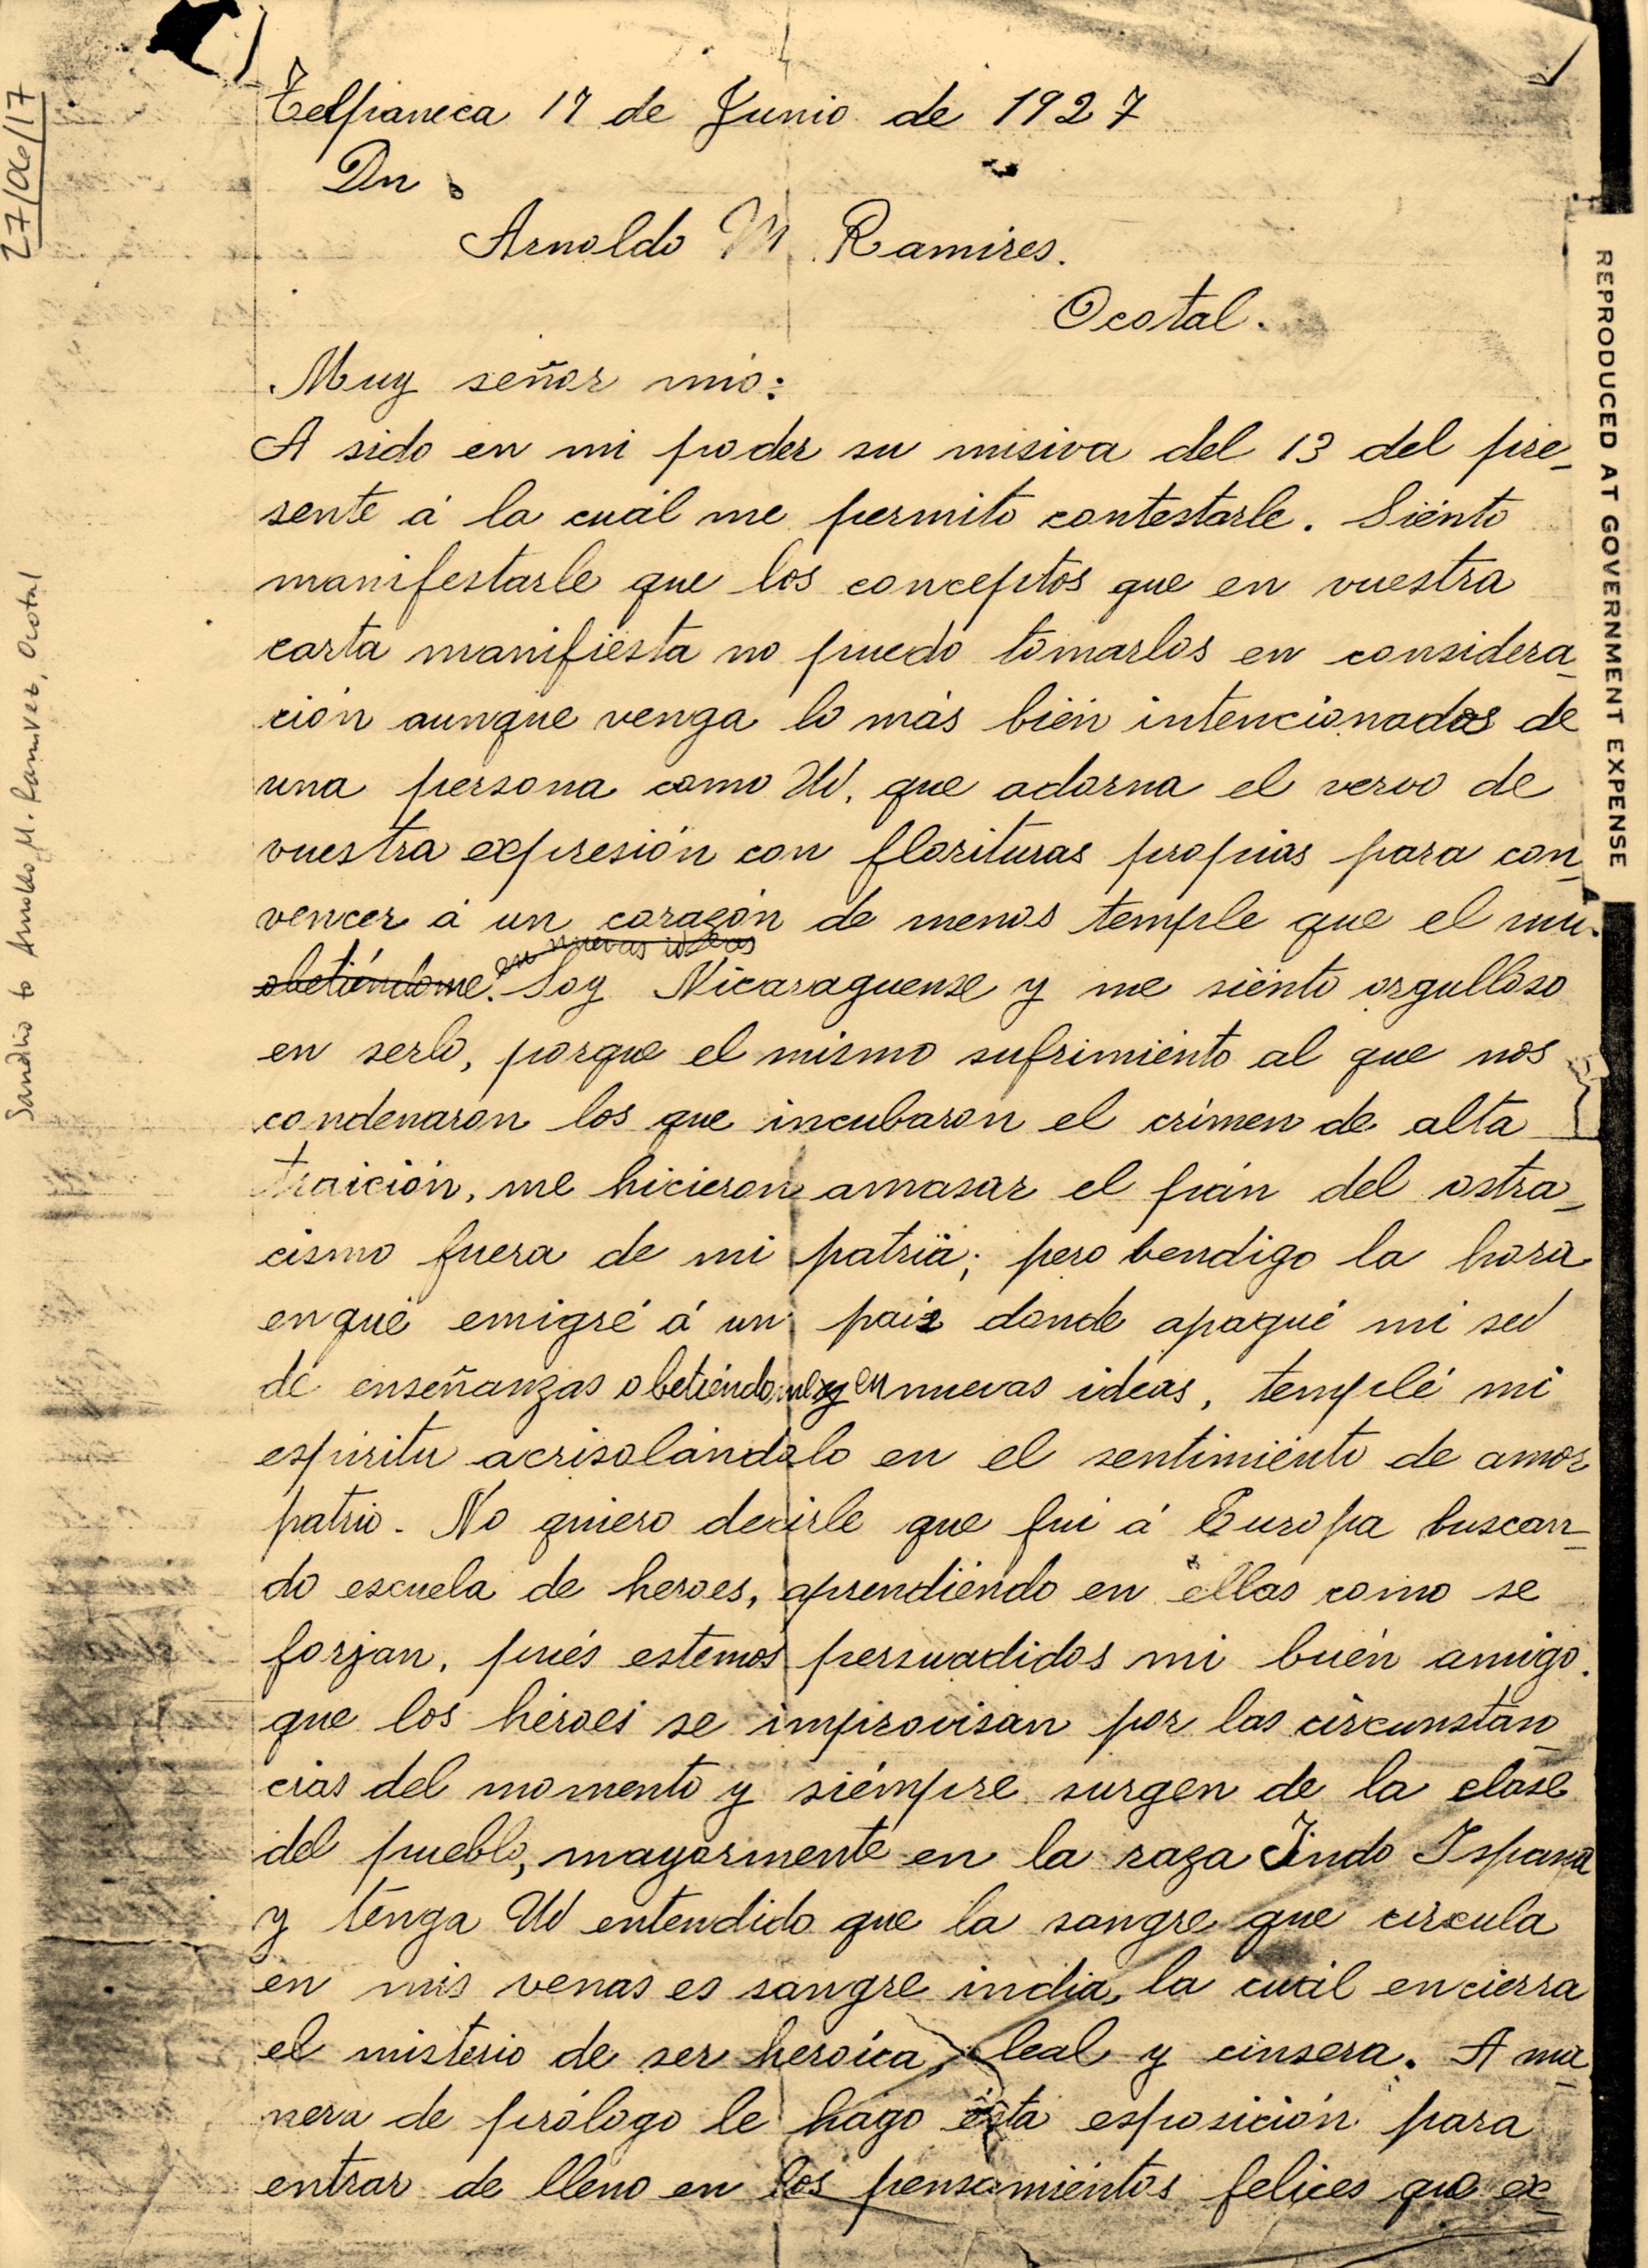 27/06/17
Sandino to Arnoldo M. Ramirez, Ocotal
REPRODUCED AT GOVERNMENT EXPENSE
Telpaneca 17 de Junio de 1927
Dn
Arnoldo M. Ramires.
Ocotal.
Muy señor mio:
A sido en mi poder su misiva del 13 del pre-
sente á la cuál me permito contestarle. Siénto
manifestarle que los conceptos que en vuestra
carta manifiésta no puedo tomarlos en considera-
ción aunque venga lo más bién intencionados de
una persona como Ud. que adorna el vervo de
vuestra expresión con florituras propias para con-
vencer á un corazón de menos temple que el mio.
obetiéndome. en nuevas ideas Soy Nicaraguense y me siénto orgulloso
en serlo, porque el mismo sufrimiénto al que nos
condenaron los que incubaron el crímen de alta
traición, me hicieron amasar el pán del ostra-
cismo fuera de mi patria; pero bendigo la hora
enqué emigré á un pais donde apagué mi sed
de enseñanzas obetiéndome y en nuevas ideas, templé mi
espiritu acrisolándolo en el sentimiénto de amor
patrio. No quiero decirle que fui á Europa buscan-
do escuela de heroes, aprendiéndo en ellas como se
forjan, pués estemos persuadidos mi buén amigo.
que los héroes se improvisan por las circunstan-
cias del momento y siémpre surgen de la clase
del pueblo, mayormente en la raza Indo Ispana
y tenga Ud entendido que la sangre que circula
en mis venas es sangre india, la cuál encierra
el misterio de ser heroíca, leal y cinsera. A ma-
nera de prólogo le hago ésta esposición para
entrar de lleno en los pensamiéntos felices que ex-